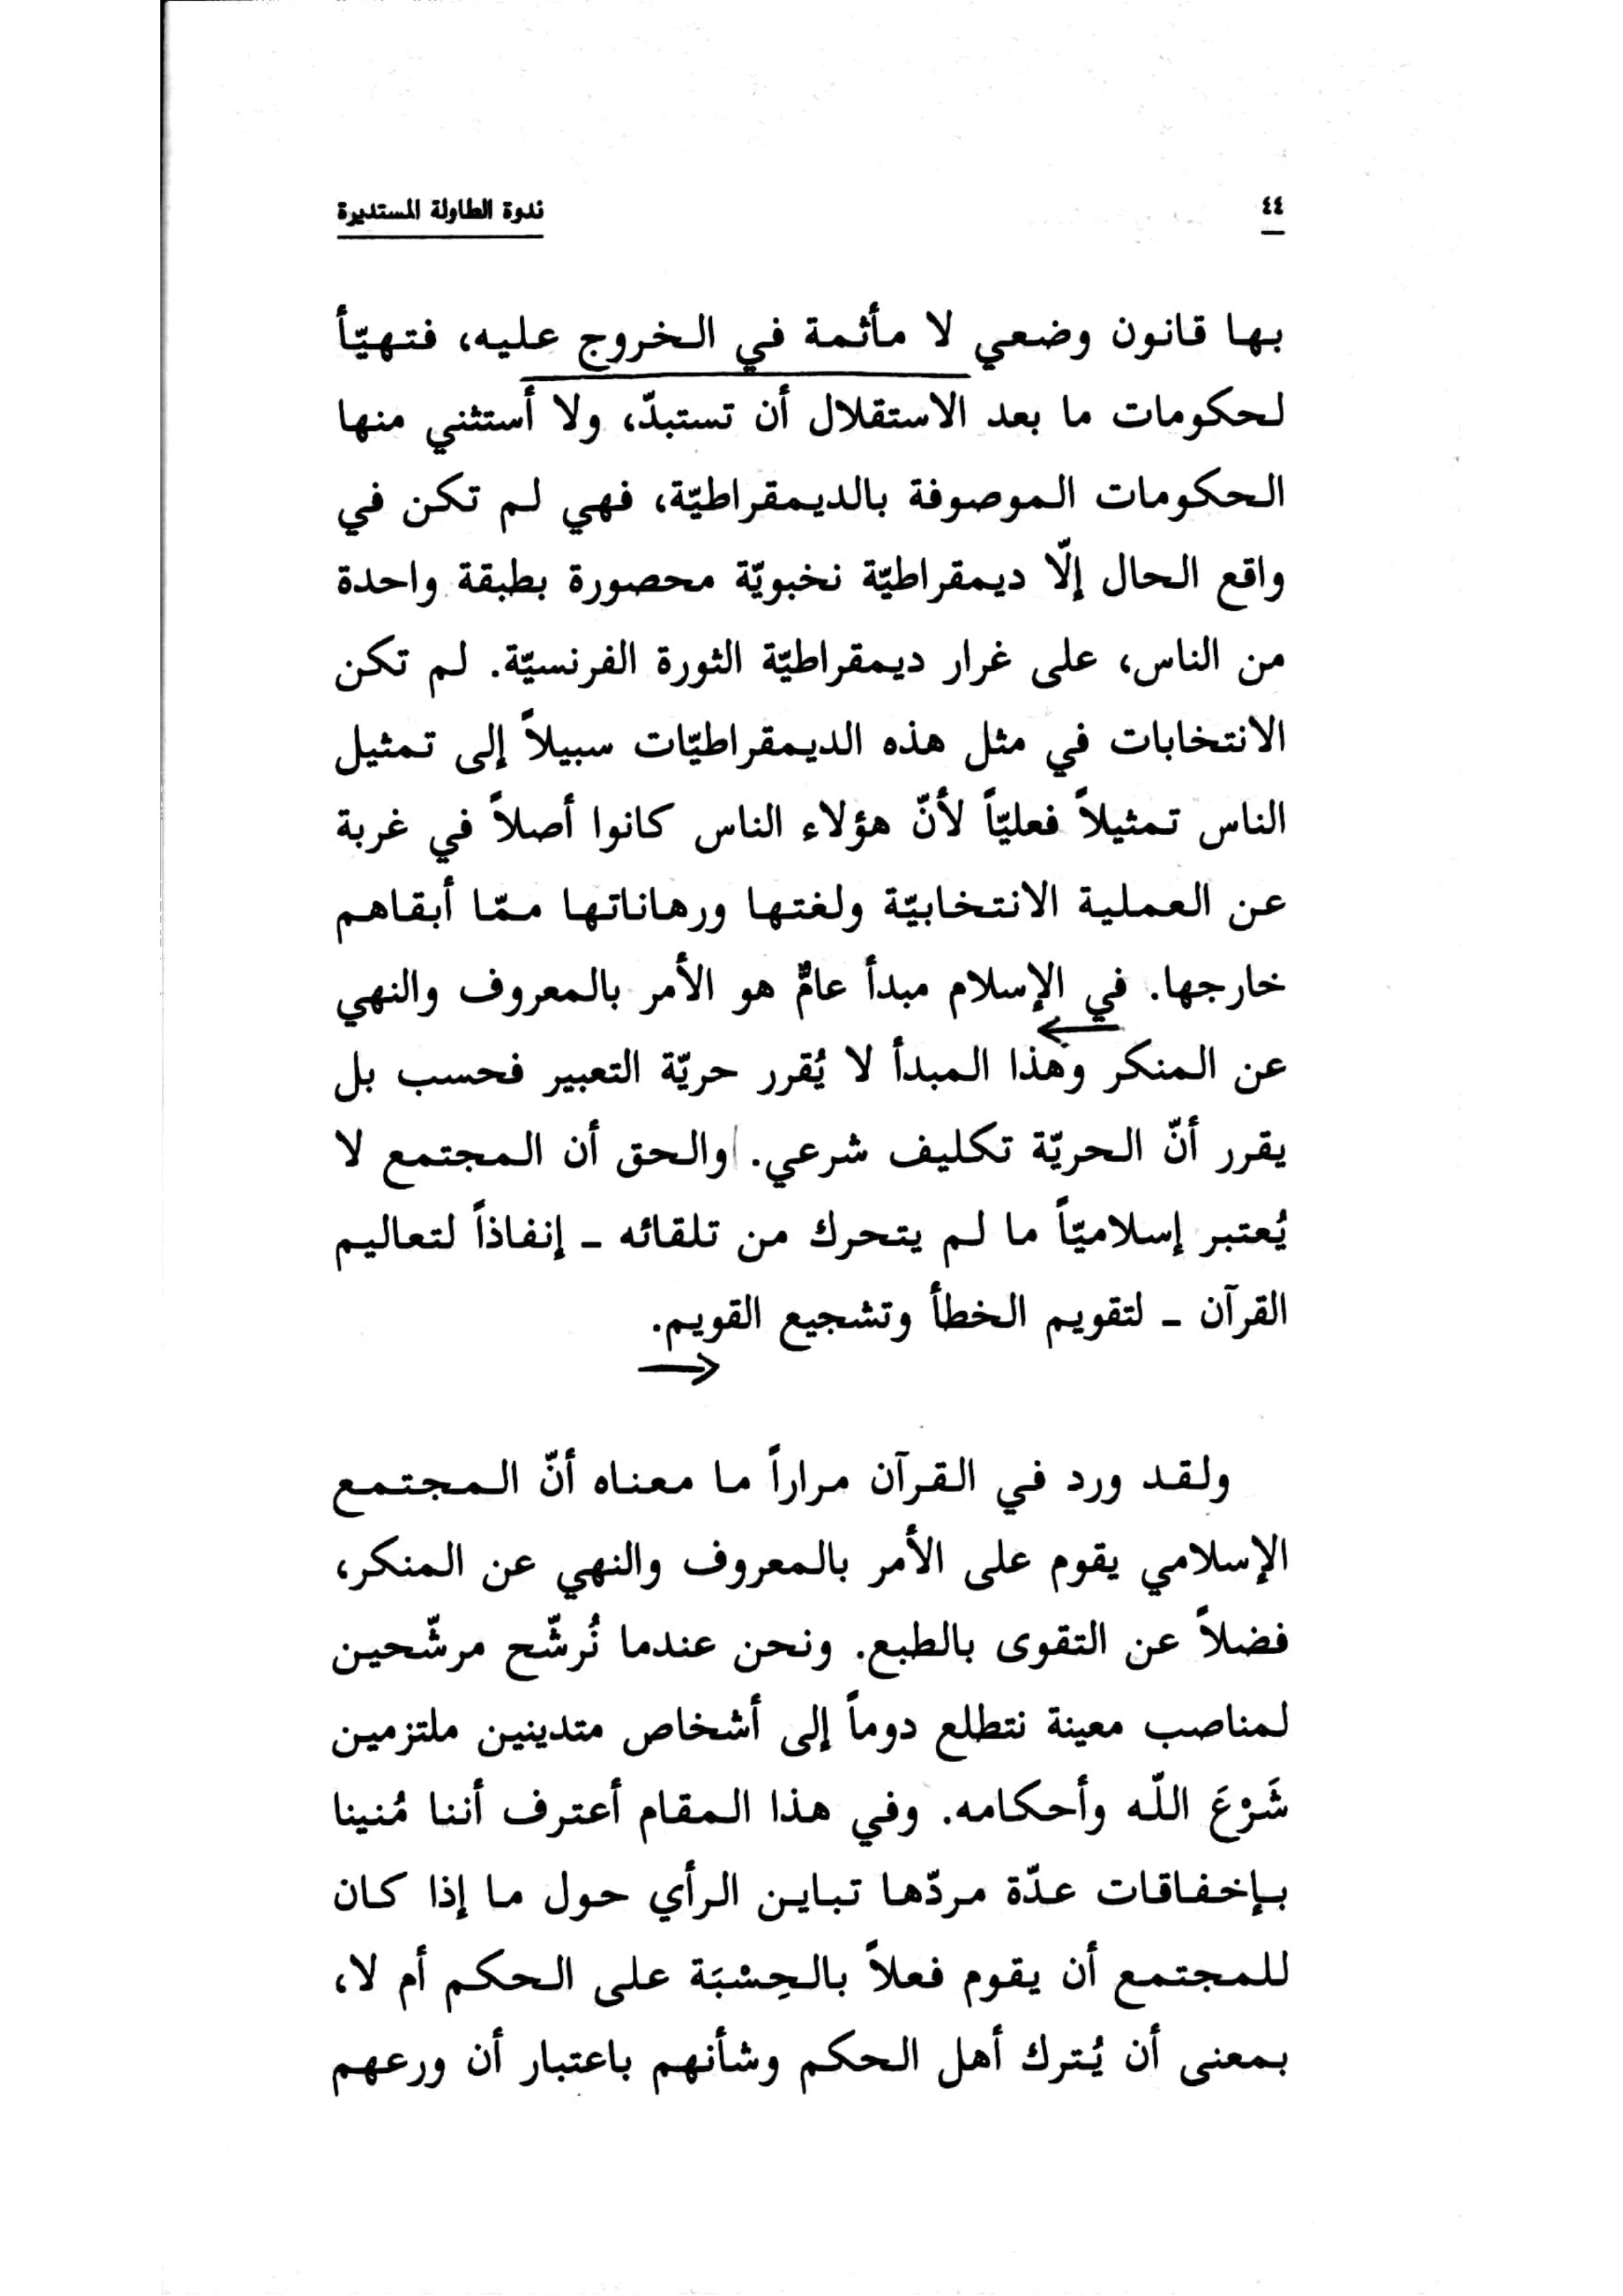 ٤٤
ندوة الطاولة المستديرة
بها قانون وضعي لا مأثمة في الخروج عليه، فتهيّأ
لحكومات ما بعد الاستقلال أن تستبدّ، ولا أستثني منها
الحكومات الموصوفة بالديمقراطيّة، فهي لم تكن في
واقع الحال إلّا ديمقراطيّة نخبويّة محصورة بطبقة واحدة
من الناس، على غرار ديمقراطيّة الثورة الفرنسيّة. لم تكن
الانتخابات في مثل هذه الديمقراطيّات سبيلاً إلى تمثيل
الناس تمثيلاً فعليّاً لأنّ هؤلاء الناس كانوا أصلاً في غربة
عن العملية الانتخابيّة ولغتها ورهاناتها ممّا أبقاهم
خارجها. في الإسلام مبدأ عامٌّ هو الأمر بالمعروف والنهي
عن المنكر وهذا المبدأ لا يُقرر حريّة التعبير فحسب بل
يقرر أنّ الحريّة تكليف شرعي. والحق أن المجتمع لا
يُعتبر إسلاميّاً ما لم يتحرك من تلقائه ـ إنفاذاً لتعاليم
القرآن ـ لتقويم الخطأ وتشجيع القويم.
ولقد ورد في القرآن مراراً ما معناه أنّ المجتمع
الإسلامي يقوم على الأمر بالمعروف والنهي عن المنكر،
فضلاً عن التقوى بالطبع. ونحن عندما نُرشّح مرشّحين
لمناصب معينة نتطلع دوماً إلى أشخاص متدينين ملتزمين
شَرْعَ اللّه وأحكامه. وفي هذا المقام أعترف أننا مُنينا
بإخفاقات عدّة مردّها تباين الرأي حول ما إذا كان
للمجتمع أن يقوم فعلاً بالحِسْبَة على الحكم أم لا،
بمعنى أن يُترك أهل الحكم وشأنهم باعتبار أن ورعهم